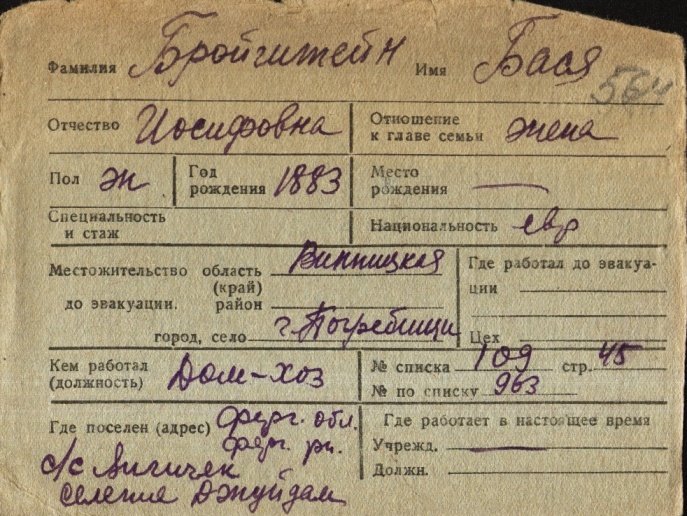 Фамилия Бройгитейн Имя Бася
Отчество Иосифовна Отношение к главе семьи жена
Пол ж Год рождения 1883 Место рождения —
Специальность и стаж Национальность евр
Местожительство область Винницкая Где работал до эвакуа-
(край) ции
до эвакуации. район
город, село г. Погребищи Цех
Кем работал (должность) Дом-хоз № списка 109 стр. 45
№ по списку 963
Где поселен (адрес) ферг. обл. Где работает в настоящее время
ферг. рн. Учрежд. —
с/с Должн.
селение Джуйдам